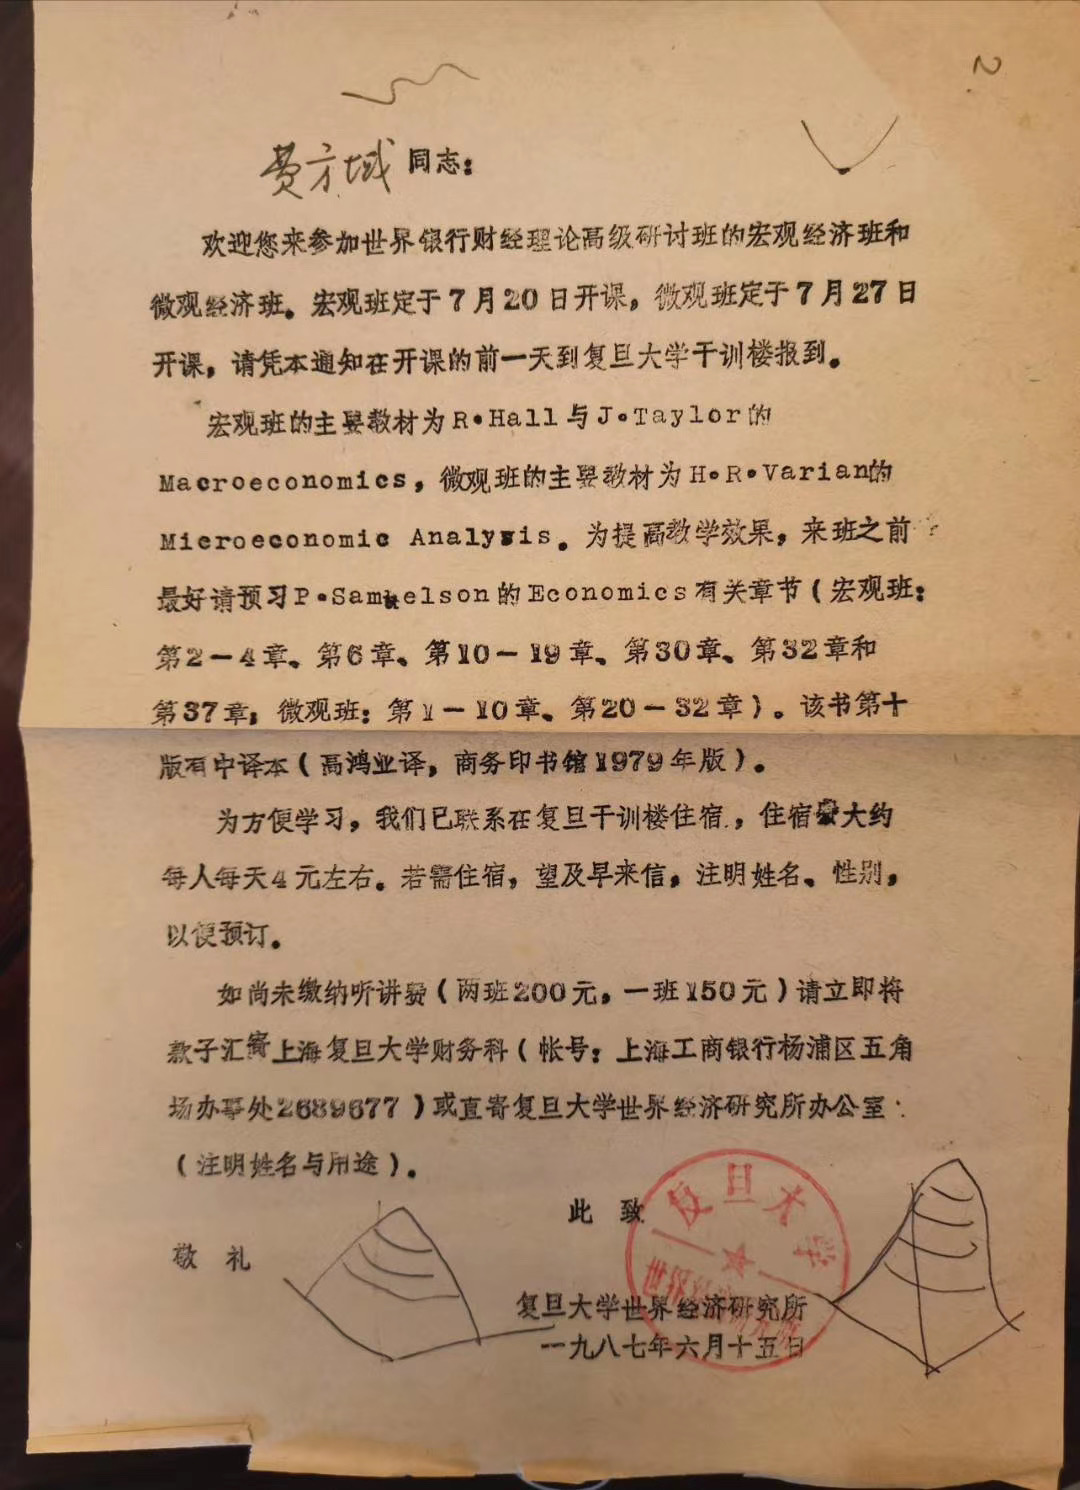 2
费方域同志：
欢迎您来参加世界银行财经理论高级研讨班的宏观经济班和
微观经济班。宏观班定于7月20日开课，微观班定于7月27日
开课，请凭本通知在开课的前一天到复旦大学干训楼报到。
宏观班的主要教材为R·Hall与J·Taylor的
Macroeconomics，微观班的主要教材为H·R·Varian的
Microeconomic Analysis。为提高教学效果，来班之前
最好请预习P·Samuelson的Economics有关章节（宏观班：
第2－4章、第6章、第10－19章、第30章、第32章和
第37章；微观班：第1－10章、第20－32章）。该书第十
版有中译本（高鸿业译，商务印书馆1979年版）。
为方便学习，我们已联系在复旦干训楼住宿，住宿费大约
每人每天4元左右。若需住宿，望及早来信，注明姓名、性别，
以便预订。
如尚未缴纳听讲费（两班200元，一班150元）请立即将
款子汇寄上海复旦大学财务科（帐号：上海工商银行杨浦区五角
场办事处2689677）或直寄复旦大学世界经济研究所办公室
（注明姓名与用途）。
此致
敬礼
复旦大学世界经济研究所
一九八七年六月十五日
复旦大学
世界经济研究所